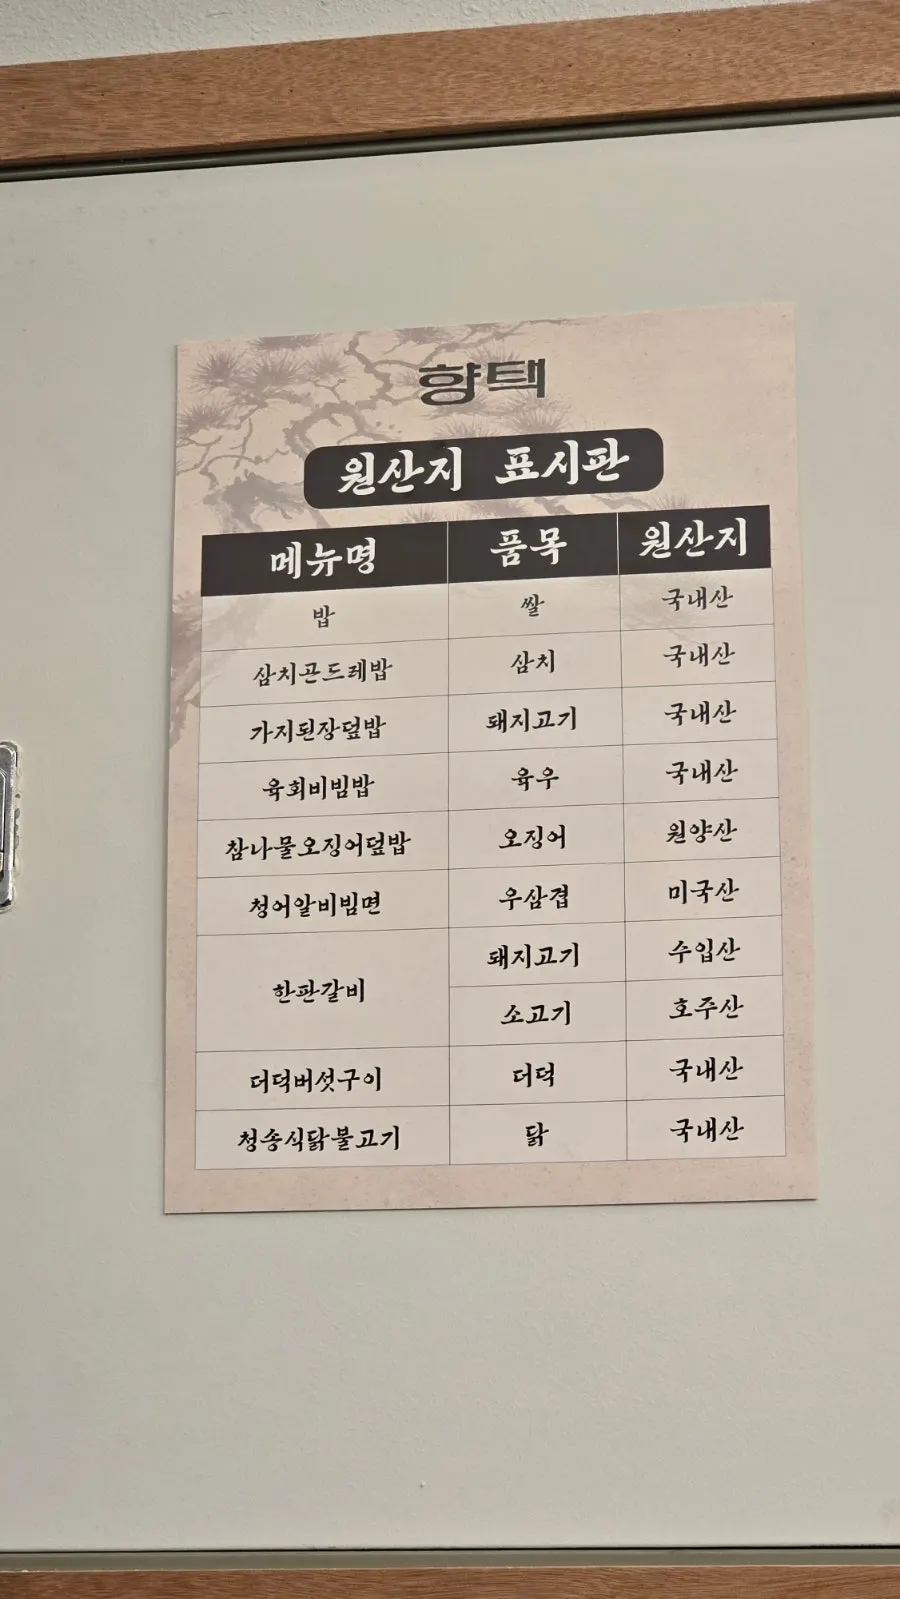 향택
원산지 표시판
메뉴명 품목 원산지
밥 쌀 국내산
삼치곤드레밥 삼치 국내산
가지된장덮밥 돼지고기 국내산
육회비빔밥 육우 국내산
참나물오징어덮밥 오징어 원양산
청어알비빔면 우삼겹 미국산
한판갈비 돼지고기 수입산
소고기 호주산
더덕버섯구이 더덕 국내산
청송식닭불고기 닭 국내산